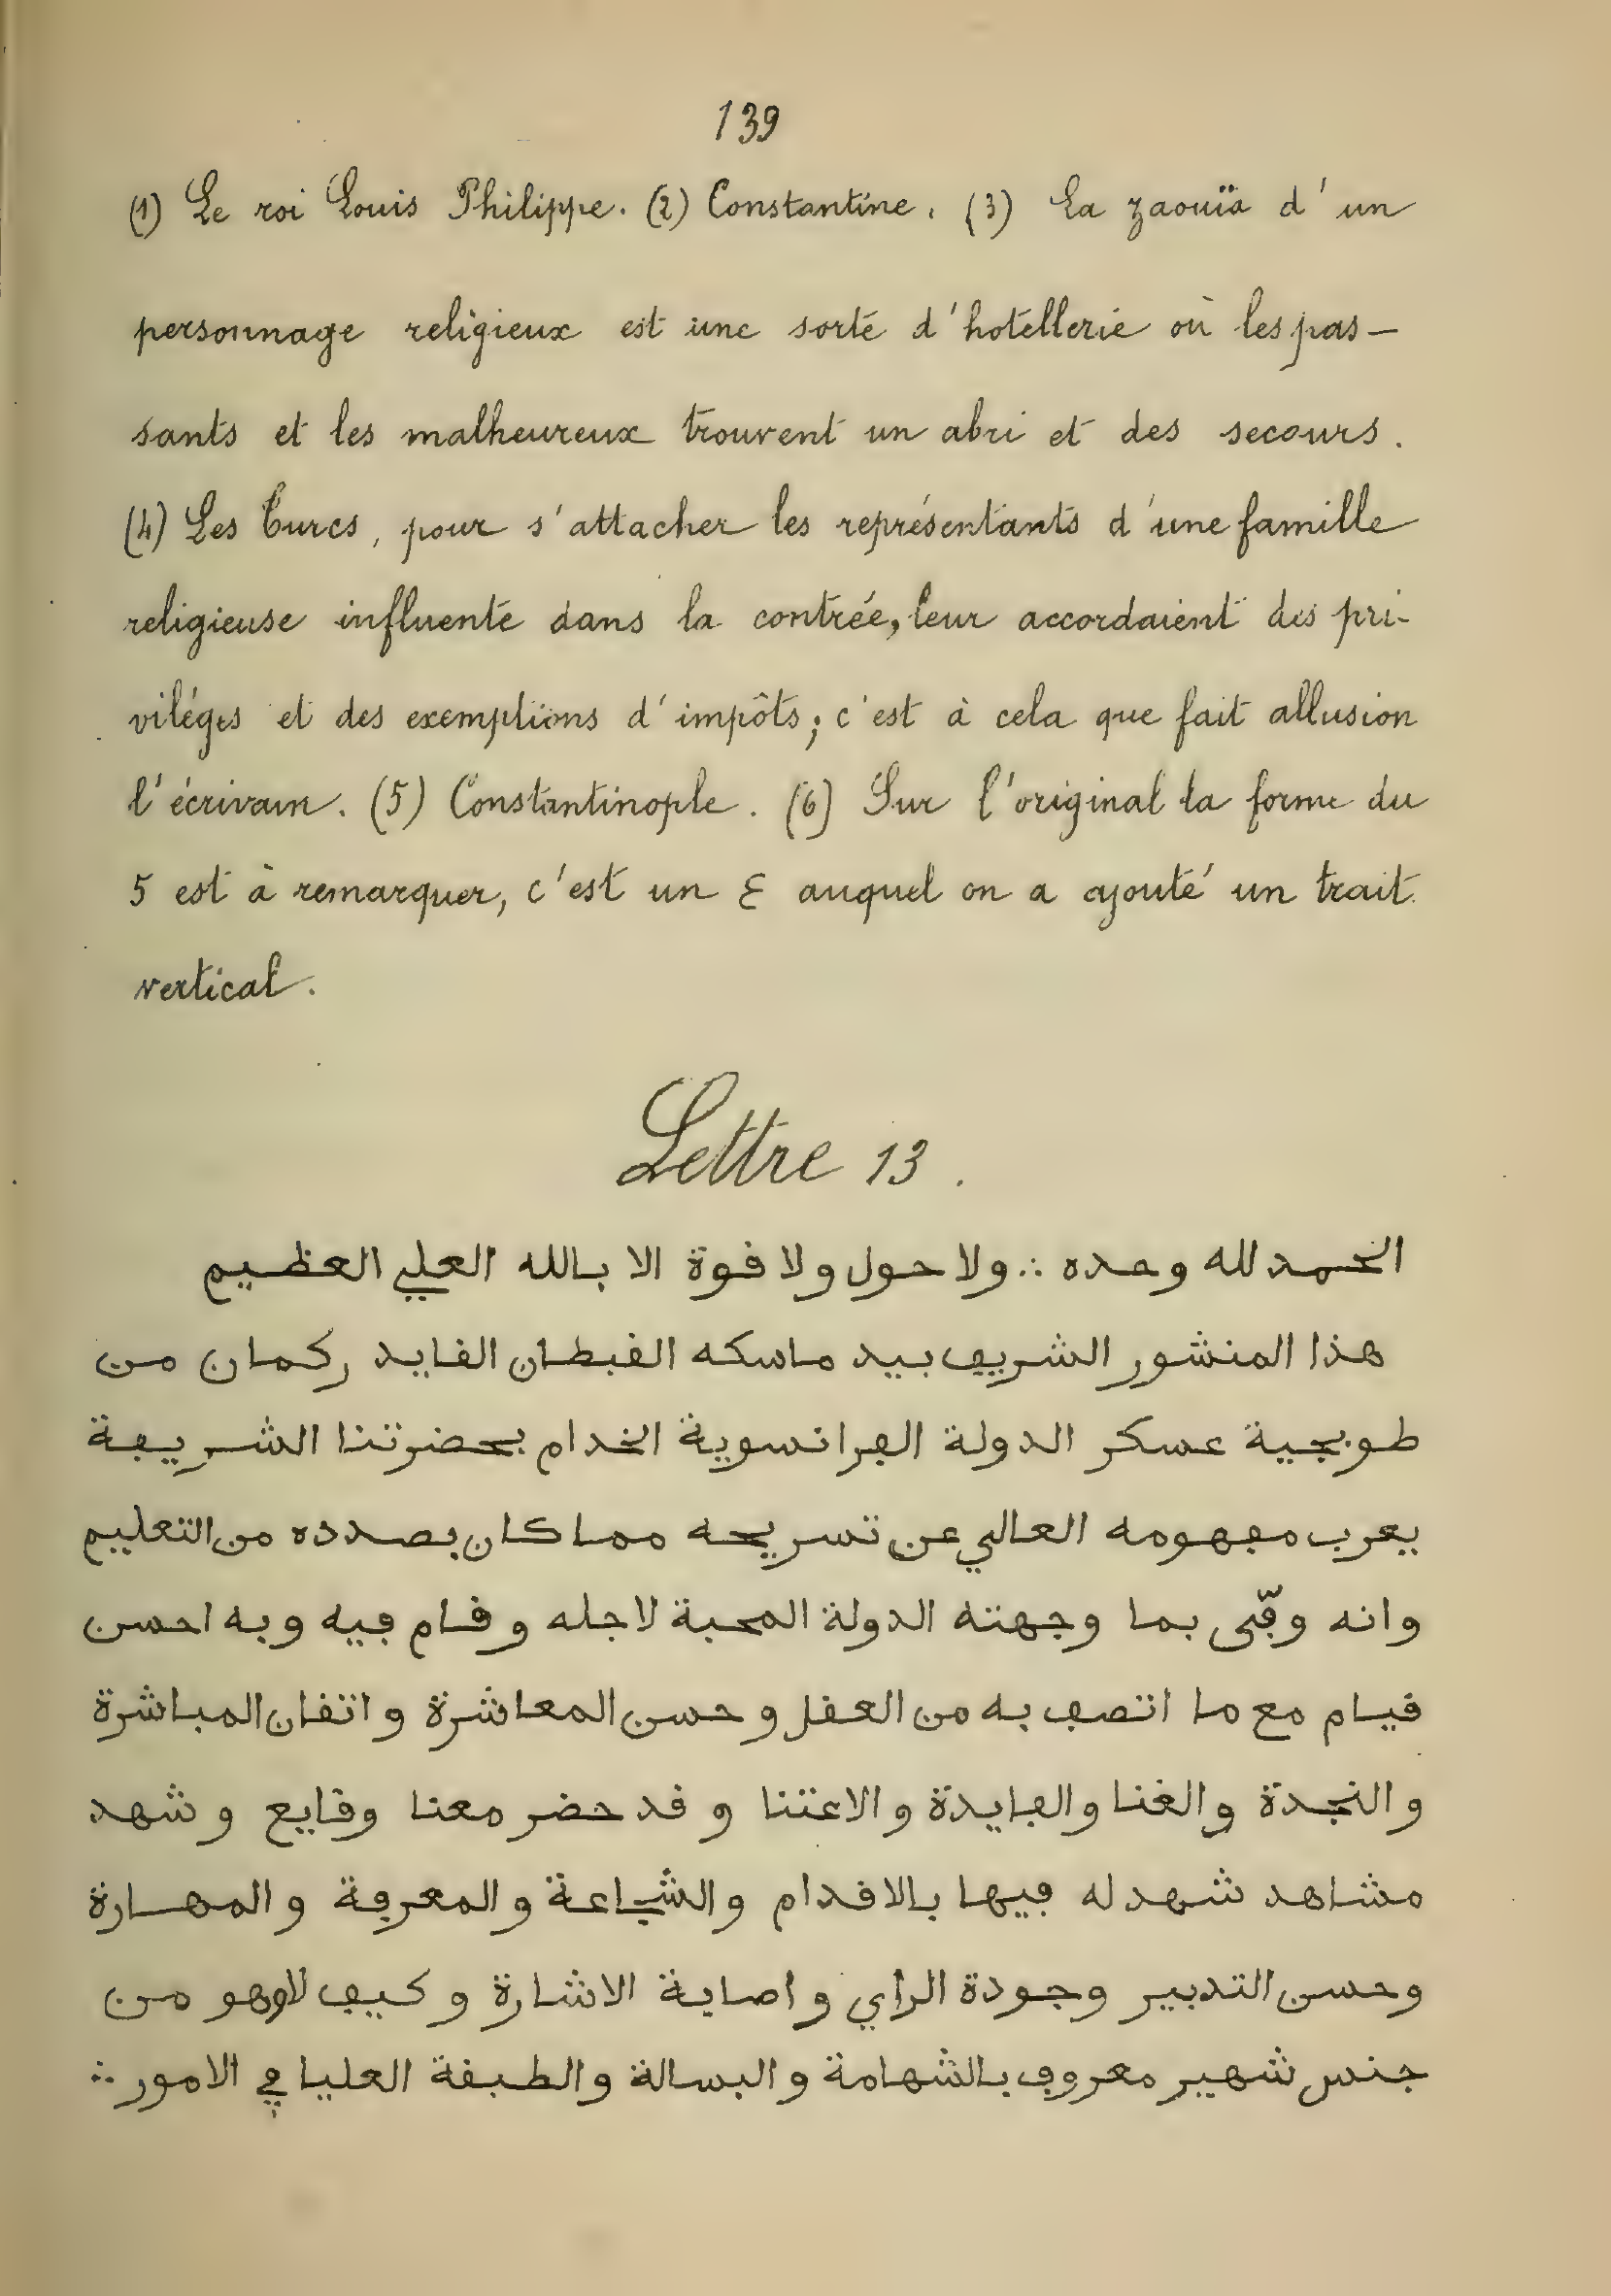 139
(1) Le roi Louis Philippe. (2) Constantine. (3) La zaouïa d'un
personnage religieux est une sorte d'hotellerie où les pas-
sants et les malheureux trouvent un abri et des secours.
(4) Les Turcs, pour s'attacher les représentants d'une famille
religieuse influente dans la contrée, leur accordaient des pri-
viléges et des exemptions d'impôts; c'est à cela que fait allusion
l'écrivain. (5) Constantinople. (6) Sur l'original la forme du
5 est à remarquer, c'est un ع auquel on a ajouté un trait
vertical.
Lettre 13.
الحمد لله وحده ∴ ولا حول ولا قوة الا بالله العلي العظيم
هذا المنشور الشريف بيد ماسكه القبطان القايد ركمان من
طوبجية عسكر الدولة الفرانسوية الخدام بحضرتنا الشريفة
يعرب مفهومه العالي عن تسريحه مما كان بصدده من التعليم
وانه وفّى بما وجهته الدولة المحبة لاجله وقام فيه وبه احسن
قيام مع ما اتصف به من العقل وحسن المعاشرة واتقان المباشرة
والنجدة والغنا والفايدة والاعتنا وقد حضر معنا وقايع وشهد
مشاهد شهد له فيها بالاقدام والشجاعة والمعرفة والمهارة
وحسن التدبير وجودة الراي واصابة الاشارة وكيف لا وهو من
جنس شهير معروف بالشهامة والبسالة والطبقة العليا في الامور ∴